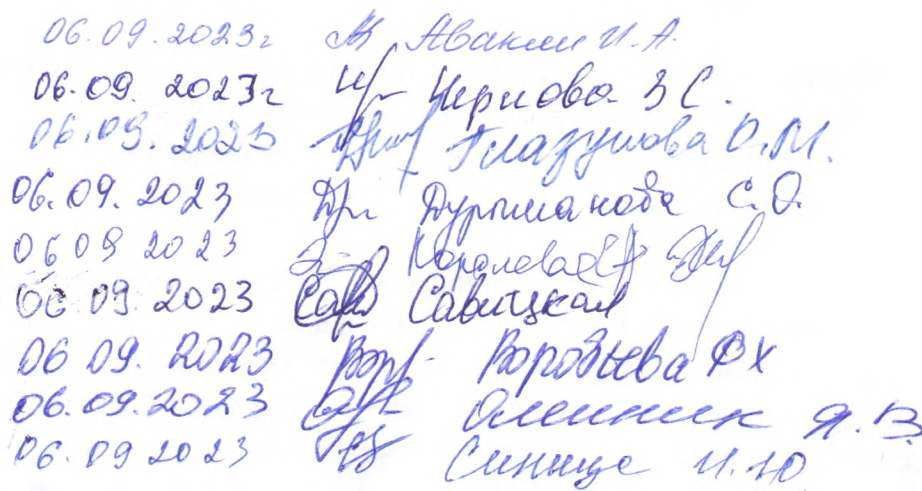 06.09.2023г Авакян И.А.
06.09.2023г Чернова З С.
06.09.2023 Глазунова О.М.
06.09.2023 Дурыманова С.О.
06 09 2023 Королева
06 09. 2023 Савицкая
06 09. 2023 Воробьева ФХ
06.09.2023 Олейник Я.В.
06.09 2023 Синица И.Ю